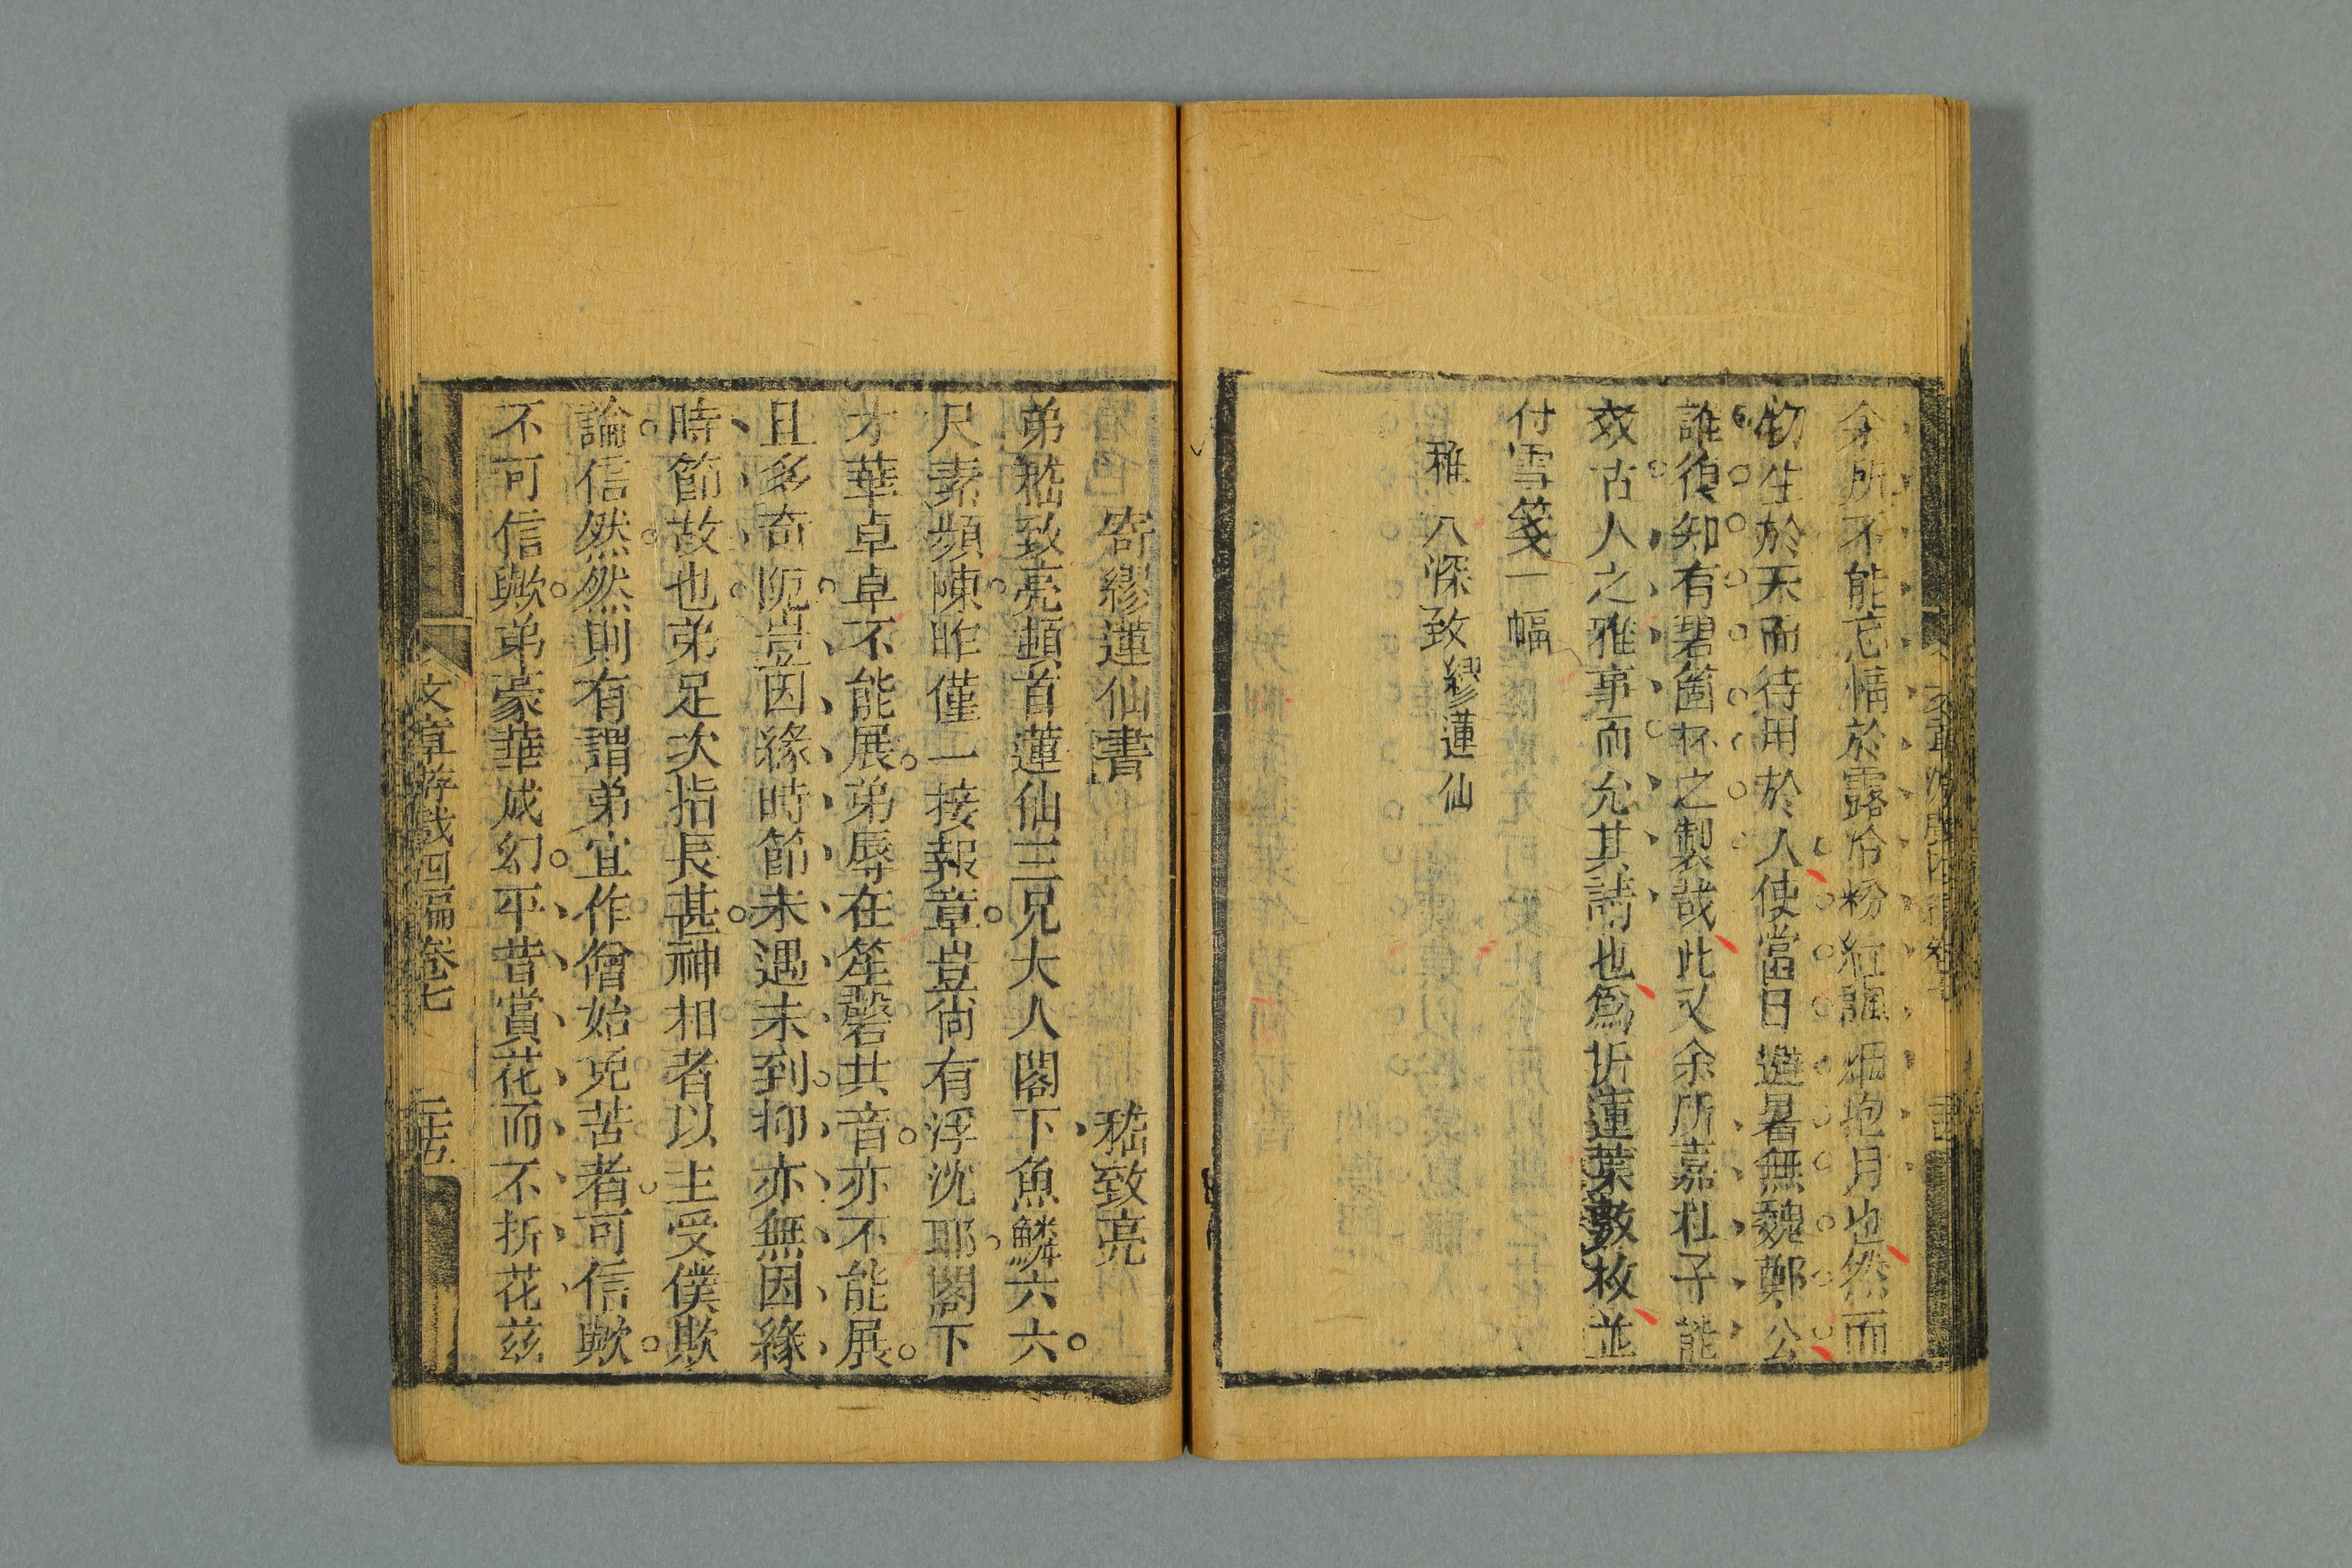 余所不能忘情於露冷粉紅諷烟抱月也然而
物生於天而待用於人使當日避暑無魏鄭公
誰復知有碧筩杯之製哉此又余所嘉杜子能
效古人之雅事而允其請也為折蓮葉數枚並
付雪箋一幅
雅人深致 繆蓮仙
寄繆蓮仙書 嵇致亮
弟嵇致亮頓首蓮仙三兄大人閣下魚鱗六六
尺素頻陳昨僅一接報章豈尚有浮沈耶閣下
才華卓卓不能展弟辱在笙磬共音亦不能展
且多奇阨豈因緣時節未遇未到抑亦無因緣
時節故也弟足次指長甚神相者以主受僕欺
論信然然則有謂弟宜作僧始免苦者可信歟
不可信歟弟豪華成幻平昔賞花而不折花茲
文章游戲四編卷七